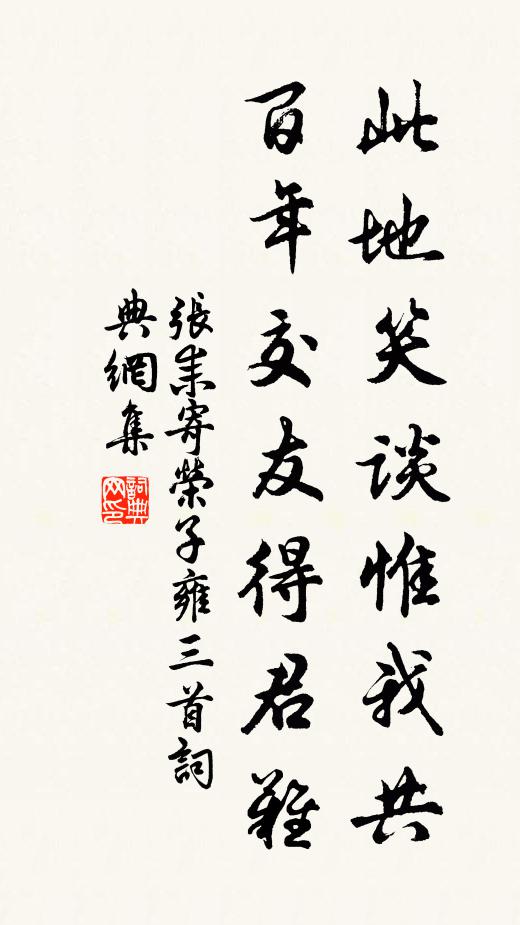 此地笑談惟我共
百年交友得君難
張耒寄榮子雍三首詞
典網集
詞典
网印